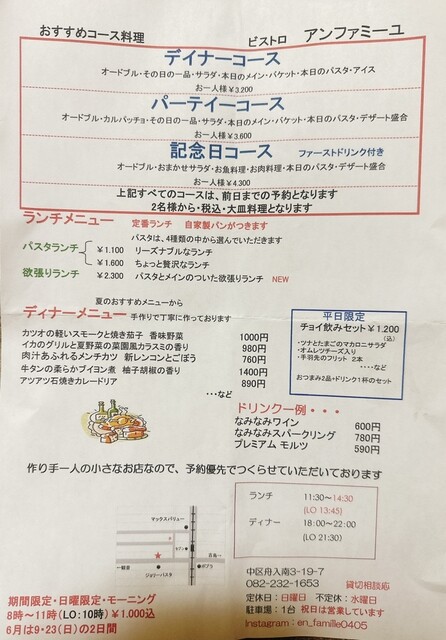 おすすめコース料理
ビストロ アンファミーユ
デイナーコース
オードブル・その日の一品・サラダ・本日のメイン・バケット・本日のパスタ・アイス
お一人様¥3,200
パーテイーコース
オードブル・カルパッチョ・その日の一品・サラダ・本日のメイン・バケット・本日のパスタ・デザート盛合
お一人様¥3,600
記念日コース ファーストドリンク付き
オードブル・おまかせサラダ・お魚料理・お肉料理・本日のパスタ・デザート盛合
お一人様¥4,300
上記すべてのコースは、前日までの予約となります
2名様から・税込・大皿料理となります
ランチメニュー 定番ランチ 自家製パンがつきます
パスタは、4種類の中から選んでいただきます
パスタランチ ¥1.100 リーズナブルなランチ
¥1.600 ちょっと贅沢なランチ
欲張りランチ ¥2.300 パスタとメインのついた欲張りランチ NEW
夏のおすすめメニューから
ディナーメニュー 手作りで丁寧に作っております
カツオの軽いスモークと焼き茄子 香味野菜 1000円
イカのグリルと夏野菜の菜園風カラスミの香り 980円
肉汁あふれるメンチカツ 新レンコンとごぼう 760円
牛タンの柔らかブイヨン煮 柚子胡椒の香り 1400円
アツアツ石焼きカレードリア 890円
・・など
平日限定
チョイ飲みセット¥1.200
(込)
・ツナとたまごのマカロニサラダ
・オムレツチーズ入り
・手羽先のフリット 2本
・・・・など
おつまみ2品+ドリンク1杯のセット
ドリンク一例・・・
なみなみワイン 600円
なみなみスパークリング 780円
プレミアム モルツ 590円
作り手一人の小さなお店なので、予約優先でつくらせていただいております
ランチ 11:30~14:30
(LO 13:45)
ディナー 18:00~22:00
(LO 21:30)
マックスバリュー
セブン
一銀舎
ジョリーパスタ
ポプラ
吉島→
中区舟入南3-19-7
082-232-1653 貸切相談応
定休日:日曜日 不定休:水曜日
駐車場:1台 祝日は営業しています
Instagram : en_famille0405
期間限定・日曜限定・モーニング
8時~11時(LO:10時) ¥1.000込
6月は9・23(日)の2日間